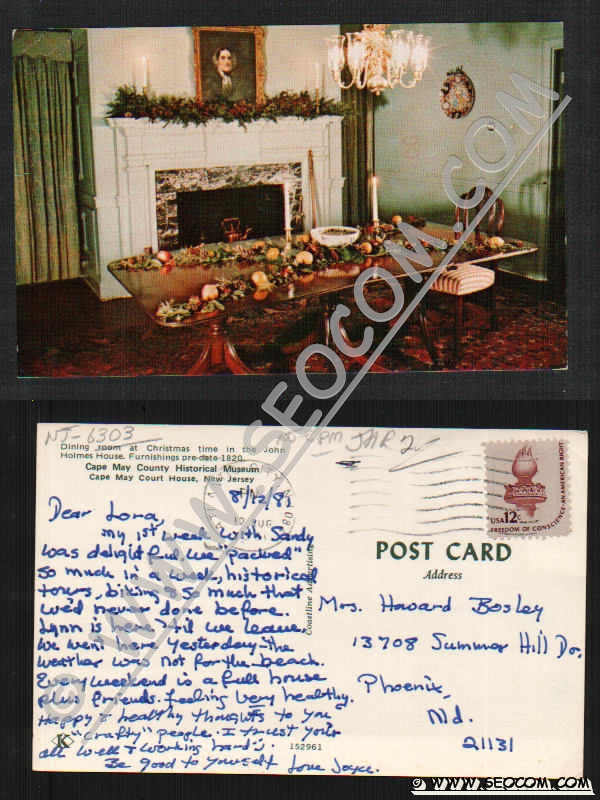 WWW.SEOCOM.COM
NJ-6303
PM JAR 2
Dining room at Christmas time in the John
Holmes House. Furnishings pre-date 1820.
Cape May County Historical Museum
Cape May Court House, New Jersey
8/12/81
USA 12c
FREEDOM OF CONSCIENCE-AN AMERICAN RIGHT
Dear Lora,
My 1st week with Sandy
was delightful we "packed"
so much in a week, historical
tours, biking & so much that
we'd never done before.
Lynn is here 'til we leave.
We went here yesterday-the
weather was not for the beach.
Every weekend is a full house
plus friends. feeling very healthy.
Happy & healthy thoughts to you
"crafty" people. I trust you're
all well & working hard.
Be good to yourself Love Joyce.
K
152961
Coastline Advertising
POST CARD
Address
Mrs. Howard Bosley
13708 Summer Hill Dr.
Phoenix,
Md.
21131
© WWW.SEOCOM.COM